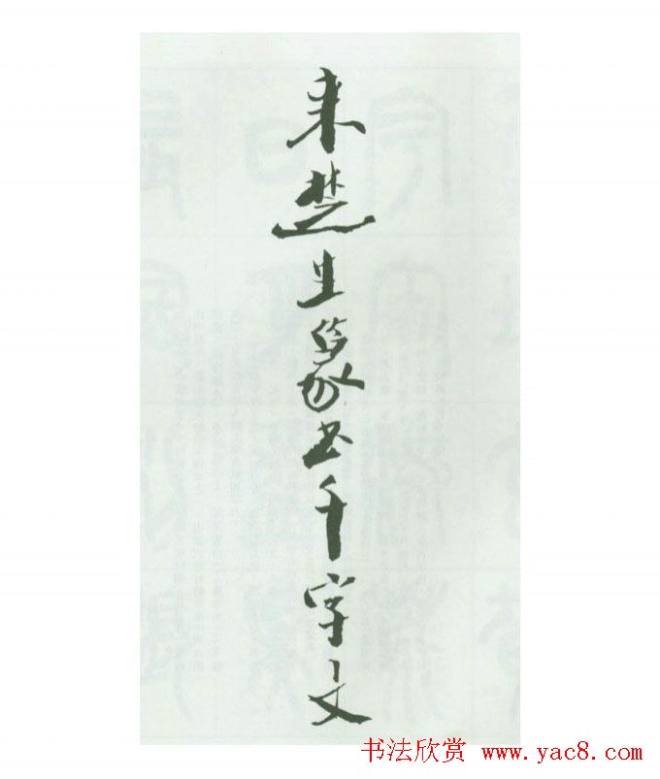 来楚生篆书千字文
书法欣赏 www.yac8.com